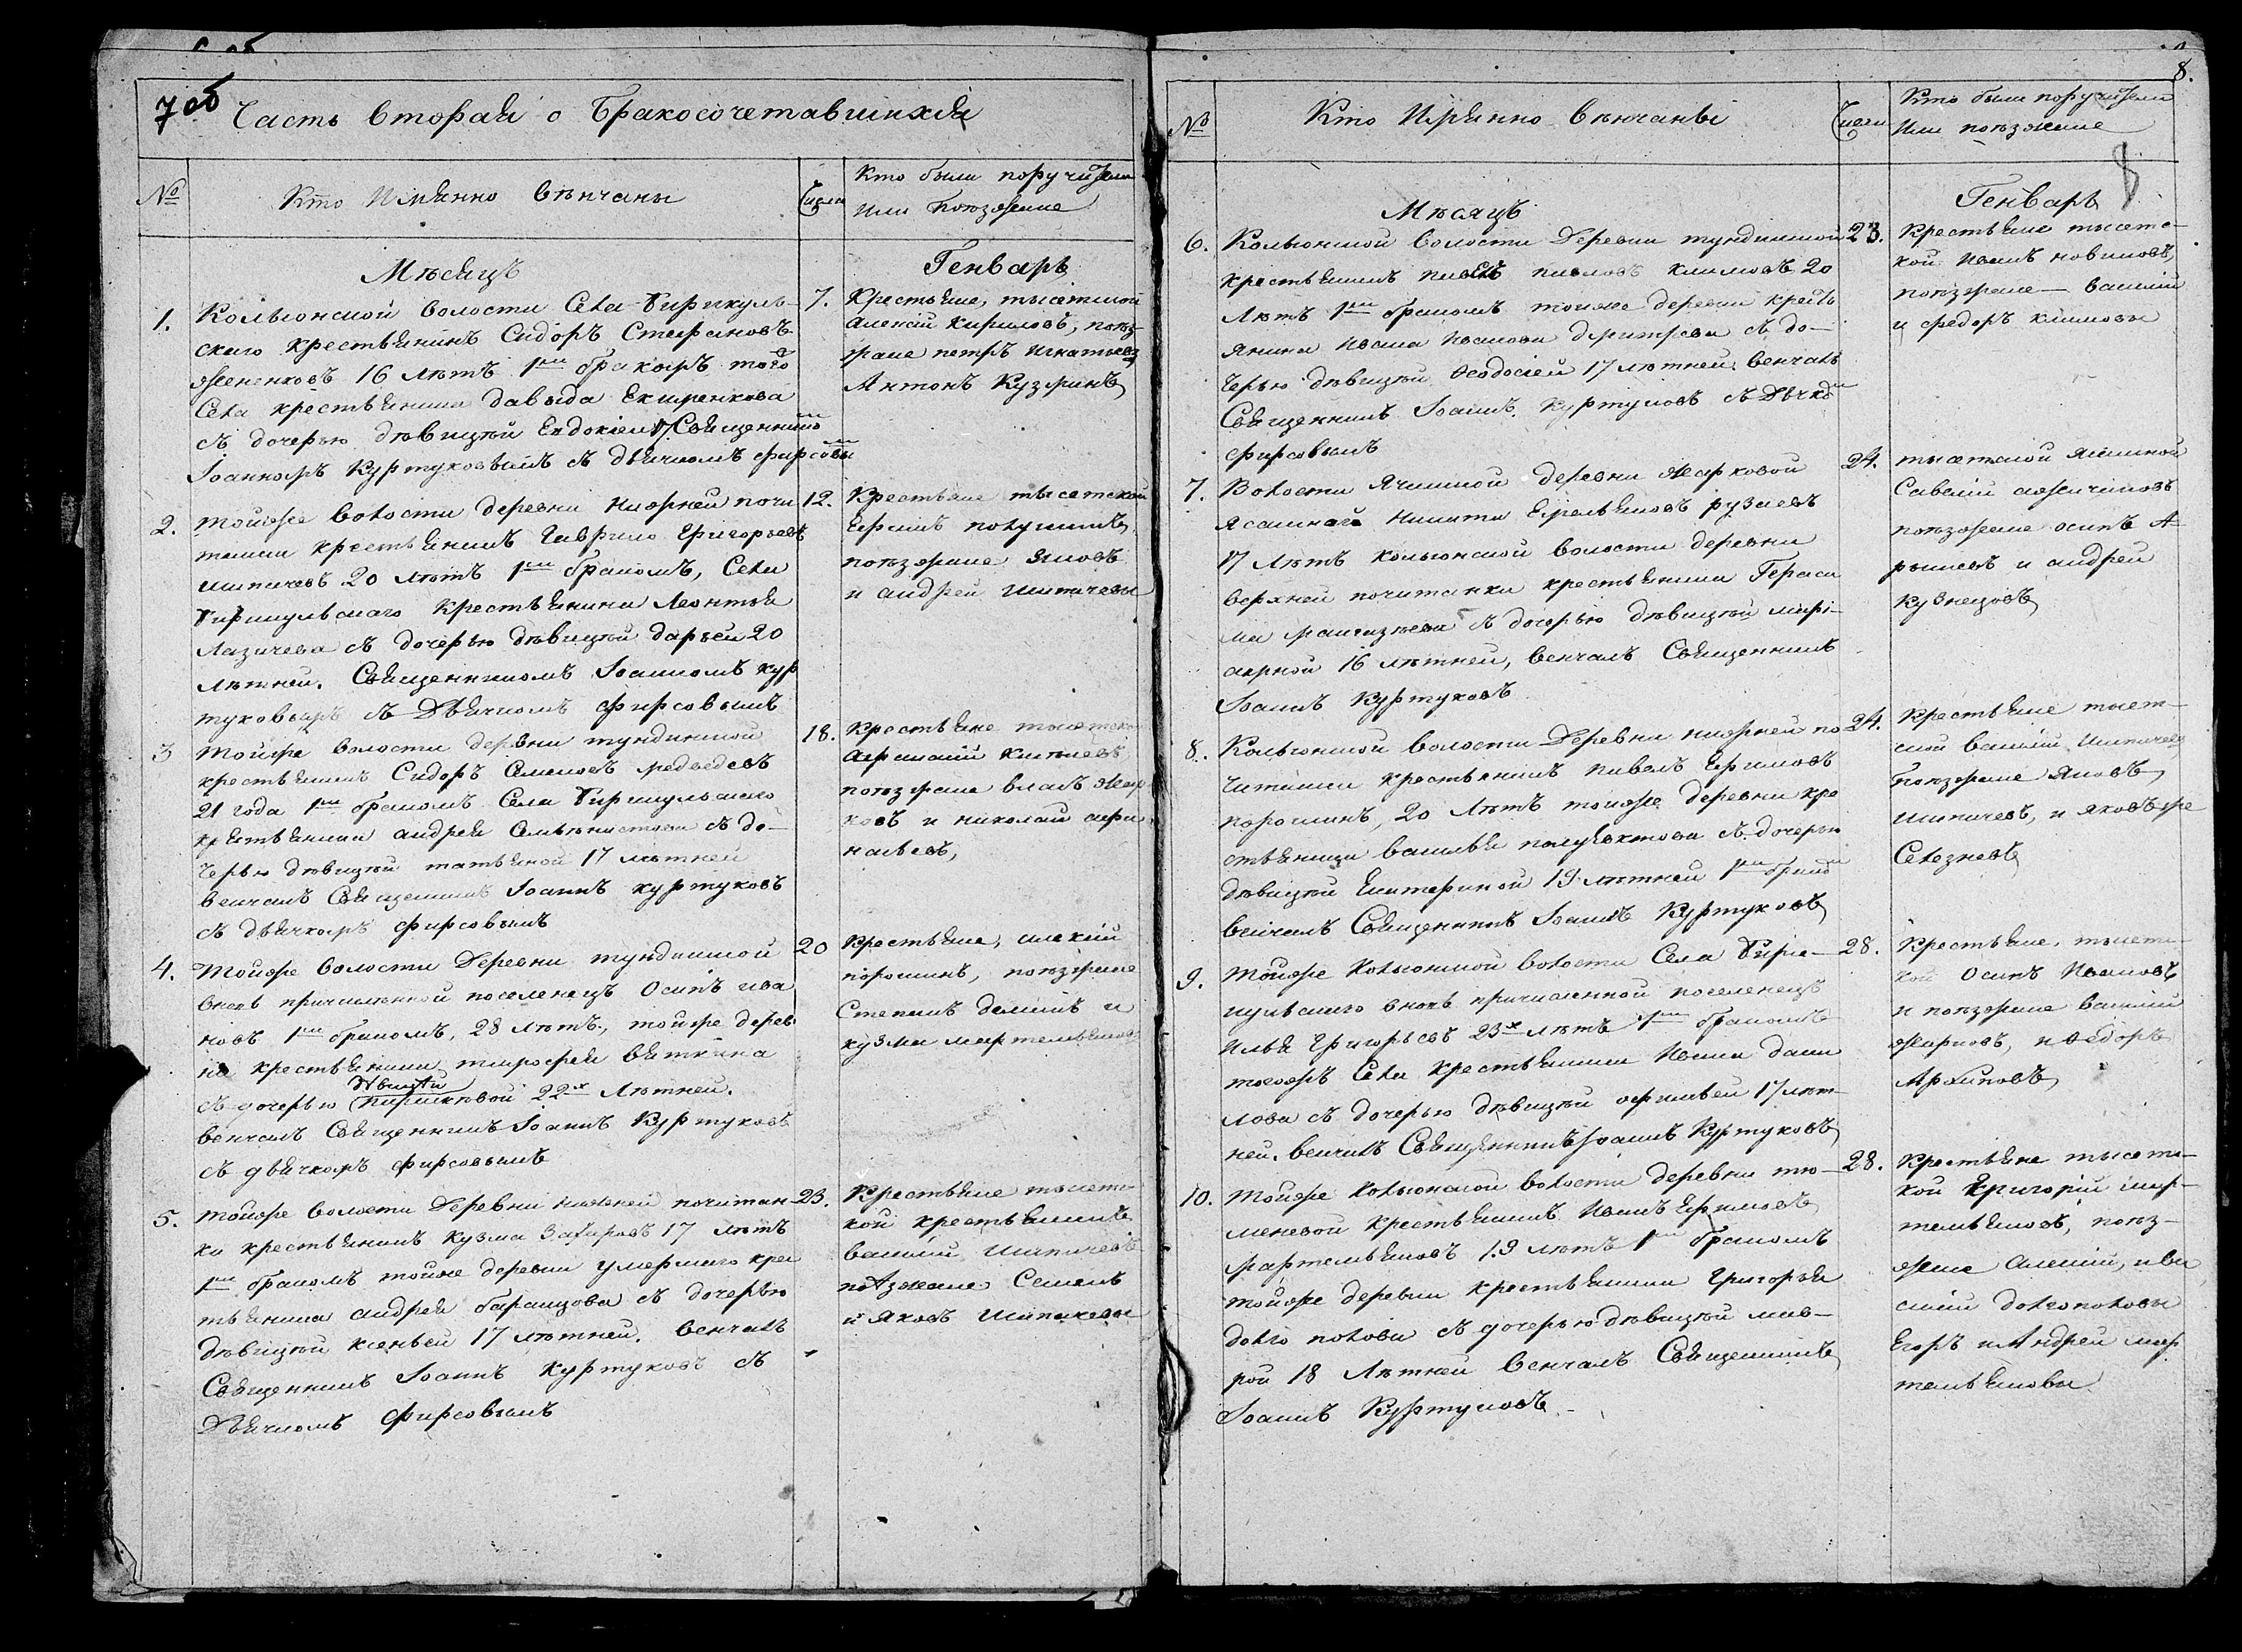 7 об
Часть вторая о Бракосочетавшихся
№
Кто Имянно вѣнчаны
Числа
Кто были поручители
Или поѣзжане
Мѣсяцъ
Генварь
1. Кольюнской волости Села Тирикуль-
скаго крестьянинъ Сидоръ Стефановъ
16 лѣтъ 1мъ бракомъ того
Села крестьянина Давыда
съ дочерью дѣвицей Евдокіей 17 Священником
Іоанномъ Куртуковымъ съ дьячкомъ Фирсовы
7. Крестьяне, тысятской
Алексій Кириловъ, поѣз-
жане петръ Игнатьевъ
Антонъ Кузминъ
2. Тойже волости деревни Нижней почи
танки крестьянинъ Гаврило Григорьевъ
Шипичевъ 20 лѣтъ 1мъ бракомъ, Села
Тирикульскаго Крестьянина Леонтья
Лазичева съ дочерью дѣвицей дарьей 20
лѣтней. Священникомъ Іоанномъ кур
туковымъ съ Дьячкомъ Фирсовымъ
12. Крестьяне тысятской
Ефимъ полушинъ
поѣзжане Яковъ
и андрей Шипичевы
3 Тойже волости деревни тундинской
крестьянинъ Сидоръ Семеновъ медведевъ
21 года 1мъ бракомъ Села Тирикульскаго
крестьянина андрея съ до-
черью дѣвицей татьяной 17 лѣтней
венчалъ Священникъ Іоаннъ куртуковъ
съ дьячкомъ Фирсовымъ
18. Крестьяне тысятской
поѣзжане власъ жар
ковъ и николай афа
насьевъ,
4. Тойже волости Деревни тундинской
вновь причисленной поселенецъ Осипъ ива
новъ 1мъ бракомъ, 28 лѣтъ, тойже дерев
ни крестьянина тимофея вяткина
съ дочерью дѣвицей 22х Лѣтней.
венчалъ Священникъ Іоаннъ Куртуковъ
съ дьячкомъ Фирсовымъ
20 Крестьяне, алексій
порошинъ, поѣзжане
Степанъ деминъ и
кузма мартемьяновъ
5. Тойже волости Деревни нижней почитан
ки крестьянинъ кузма Захаровъ 17 лѣтъ
1мъ бракомъ тойже деревни умершаго крес
тьянина андрея баранцова съ дочерью
дѣвицей ксеньей 17 лѣтней. венчалъ
Священникъ Іоаннъ Куртуковъ съ
Дьячкомъ Фирсовымъ
23. Крестьяне тысятс-
кой крестьянинъ
василій Шипичевъ
поѣзжане Семенъ
и Яковъ Шипичевы
8.
№
Кто Имянно вѣнчаны
Числа
Кто были поручители
Или поѣзжане
8
Мѣсяцъ
Генварь
6. Кольюнской волости Деревни тундинской
крестьянинъ павелъ павловъ климовъ 20
Лѣтъ 1мъ бракомъ тойже деревни кресть
янина Ивана Иванова дмитрева съ до-
черью дѣвицей Феодосіей 17 лѣтней венчалъ
Священникъ Іоаннъ Куртуковъ съ Дьчком
Фирсовымъ
23. Крестьяне тысятс-
кой Иванъ новиковъ,
поѣзжане — василій
и федоръ климовы
7. Волости Ячинской деревни жарковой
Ясашнаго Никита Емельяновъ рузаевъ
17 Лѣтъ кольюнской волости деревни
верхней почитанки крестьянина Гераси
ма мангазѣева съ дочерью дѣвицей мирі-
амной 16 лѣтней, венчалъ Священникъ
Іоаннъ Куртуковъ
24. тысятской ясашной
Савелій
поѣзжане осипъ А-
и андрей
кузнецовъ
8. Кольюнской волости Деревни нижней по
читанки крестьянинъ павелъ Ефимовъ
порошинъ, 20 Лѣтъ тойже деревни кре
стьянина василья полуектова съ дочерью
дѣвицей Екатериной 19 лѣтней 1мъ бракм
венчалъ Священникъ Іоаннъ Куртуковъ
24. Крестьяне тысят-
ской василій Шипичевъ
поѣзжане Яковъ
Шипичевъ, и яковъже
Селезневъ
9. Тойже Кольюнской волости Села Тири-
кульскаго вновь причисленной поселенецъ
Илья Григорьевъ 23х лѣтъ 1мъ бракомъ
тогожъ Села Крестьянина Ивана дани
лова съ дочерью дѣвицей офимьей 17 лѣт-
ней. венчалъ Священникъ Іоаннъ Куртуковъ
28. Крестьяне, тысятс-
кой Осипъ Ивановъ
и поѣзжане василій
жарковъ, и Федоръ
Архиповъ
10. Тойже Кольюнской волости деревни тю-
меневой крестьянинъ Иванъ Ефимовъ
мартемьяновъ 19 лѣтъ 1мъ бракомъ
тойже деревни крестьянина Григорья
долгополова съ дочерью дѣвицей мав-
рой 18 Лѣтней венчалъ Священникъ
Іоаннъ Куртуковъ
28. Крестьяне тысятс-
кой Григорій мар-
темьяновъ, поѣз-
жане Алексій, и ва
силій долгополовы
Егоръ и Андрей мар
темьяновы